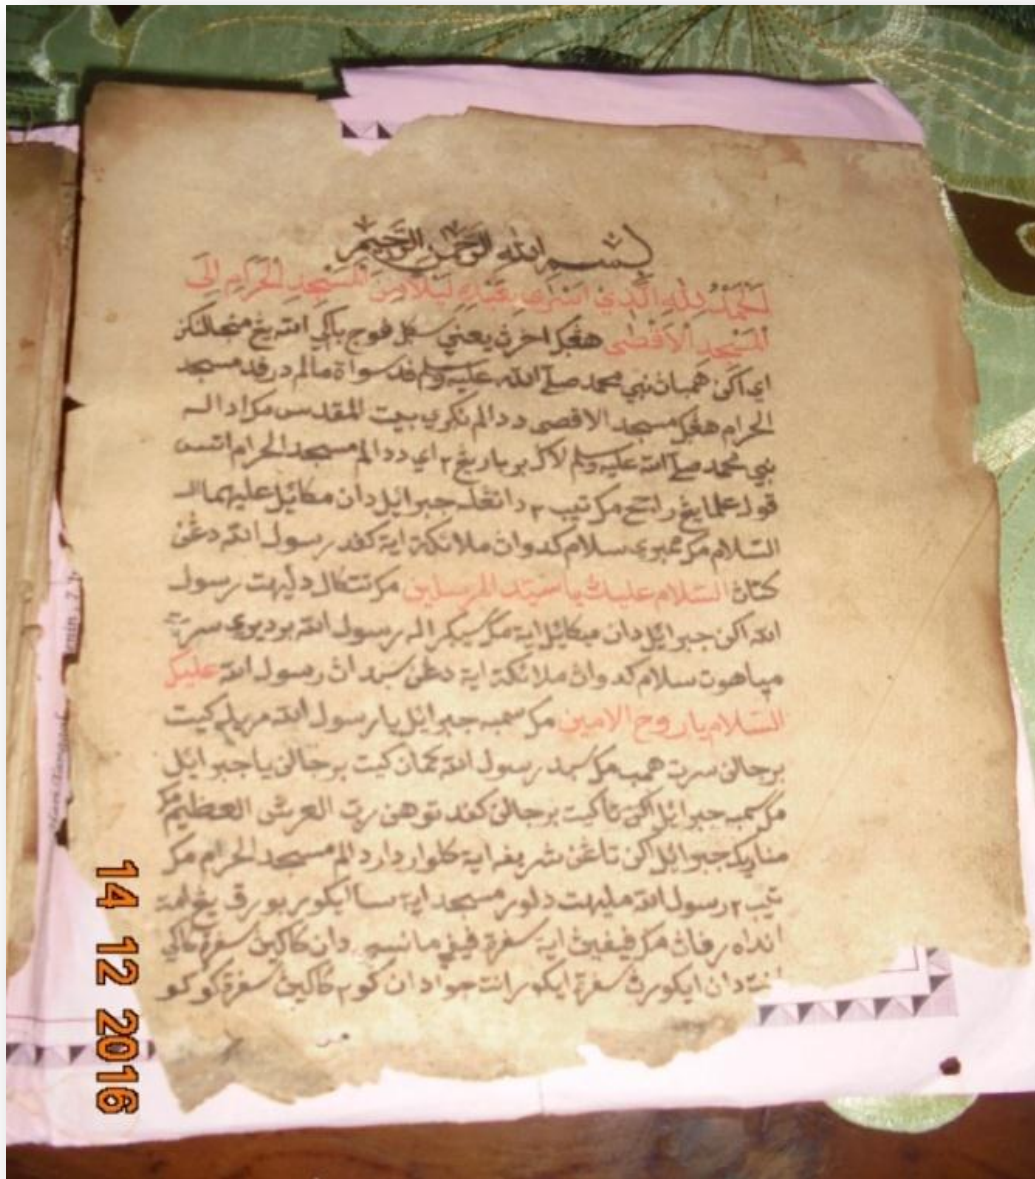 بسم الله الرحمن الرحيم
الحمد لله الذي اسرى بعبده ليلا من المسجد الحرام الى
المسجد الاقصى هڠݢ اخرڽ يعني سݢل فوج باݢي الله يڠ منجالنكن
اي اكن همبان نبي محمد صلى الله عليه وسلم ڤد سواة مالم درڤد مسجد
الحرام هڠݢ مسجد الاقصى ددالم نݢري بيت المقدس مك اداله
نبي محمد صلى الله عليه وسلم لاݢ برباريڠ٢ اي ددالم مسجد الحرام اتس
قول علما يڠ راجح مك تيب٢ داتڠله جبرائيل دان مكائيل عليهما
السلام مك ممبري سلام كدوان ملائكة اية كڤد رسول الله دڠن
كتاڽ السلام عليك يا سيد المرسلين مك تتكال دليهت رسول
الله اكن جبرائيل دان ميكائيل اية مك سݢراله رسول الله برديري سرت
مياهوت سلام كدوان ملائكة اية دڠن سبدان رسول الله عليكم
السلام يا روح الامين مك سمبه جبرائيل يا رسول الله مريله كيت
برجالن سرت همب مك سبد رسول الله كمان كيت برجالن يا جبرائيل
مك سمبه جبرائيل اكن تا كيت برجالن كڤد توهن رب العرش العظيم مك
مناريك جبرائيل اكن تاڠن شريف ايه كلوار دار دالم مسجد الحرام مك
تيب٢ رسول الله مليهت دلور مسجد ايه سا ايكور بورق يڠ
انداه رڤاڽ مك ڤيڤين ايه سڤرة ڤيڤي مانسي دان كاكين سڤرة كاكي
انت دان ايكورڽ سڤرة ايكور انت جوا دان كوكو كاكين سڤرة كوكو